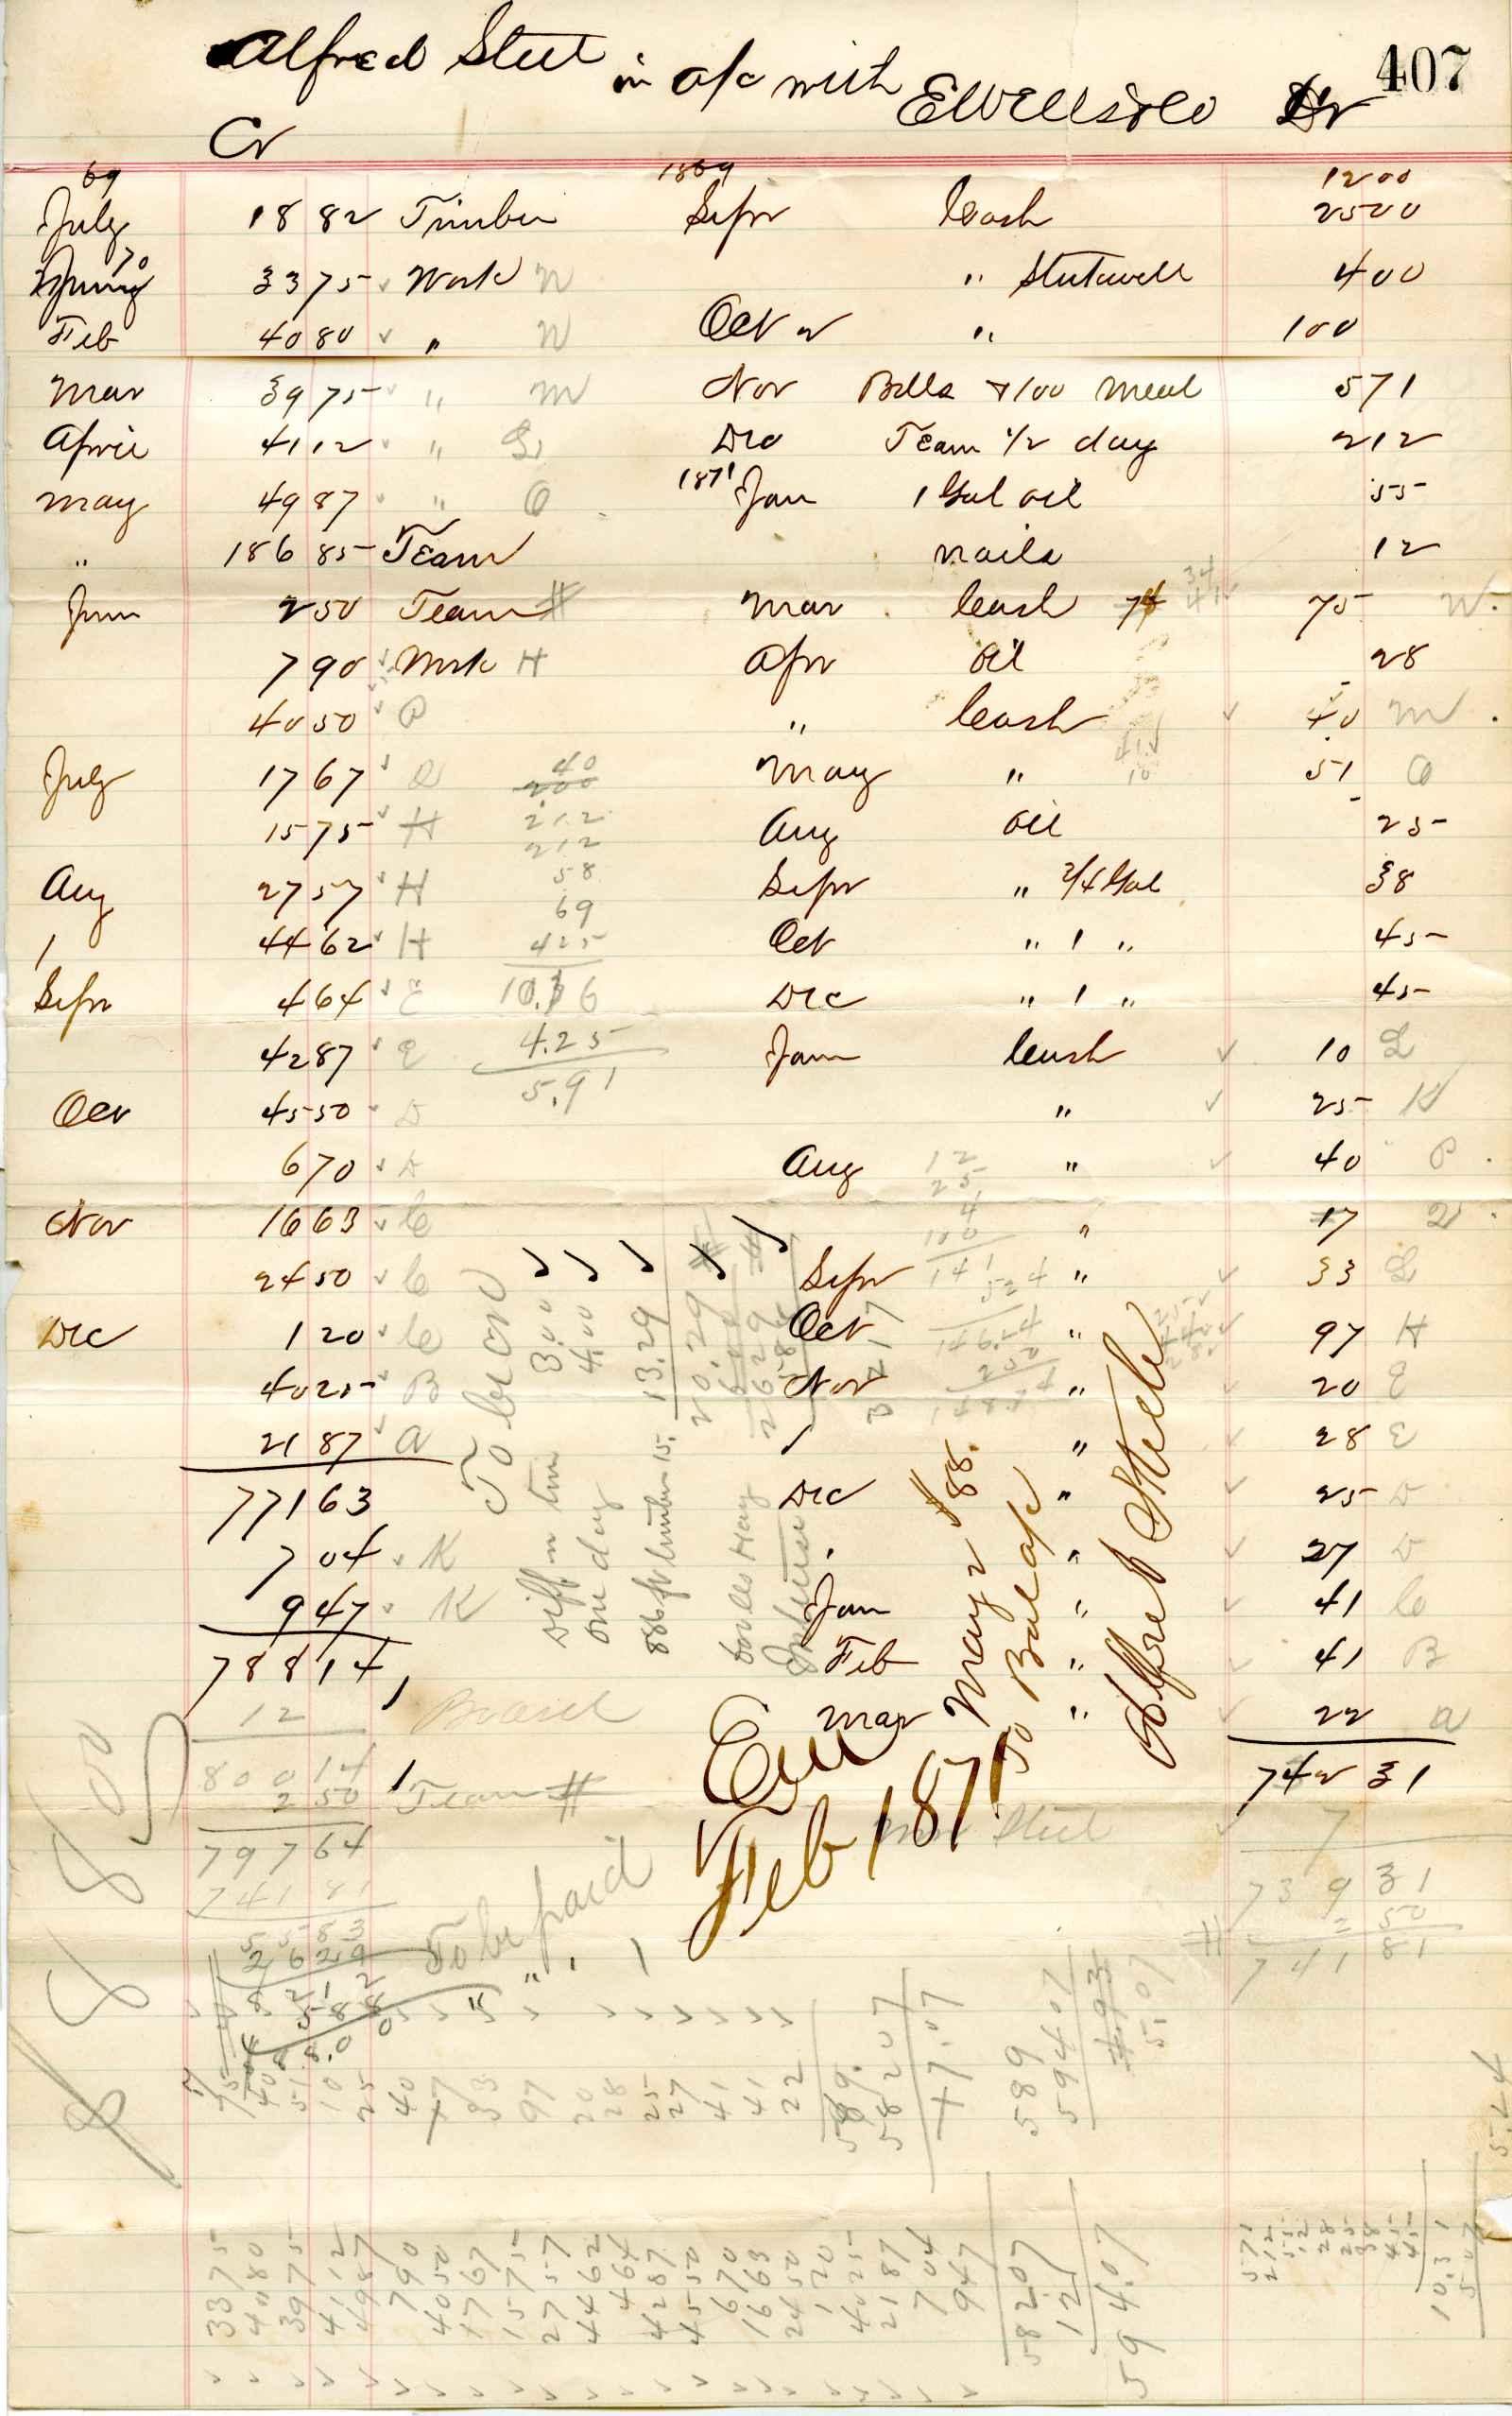 407
Alfred Steel in a/c with E Wells & Co Dr
Cr
69 1869 1200
July 18 82 Timber Sepr Cash 2500
70 33 75 Work W " 400
Feb 40 80 " W Oct 2 " 100
Mar 39 75 " M Nov 100 Meal 571
April 41 12 " Dec Team 1/2 day 212
May 49 87 " O 1871 Jan 1 Gal oil 55
" 186 85 Team nails 12
June 2 50 Team # Mar Cash 75 W
7 90 Work H Apr oil 28
40 50 P " Cash 40 M
July 17 67 May " 51 O
15 75 H Aug oil 25
Aug 27 57 H Sepr " 3/4 Gal 38
" 44 62 H Oct " 1 " 45
Sepr 4 64 E Dec " 1 " 45
42 87 E Jan Cash 10 L
Oct 45 50 D " 25 K
6 70 D Aug " 40 P
Nov 16 63 C " 17
24 50 C Sepr " 33 L
Dec 1 20 C Oct " 97 H
40 25 B Nov " 20 E
21 87 A " " 28 E
771 63 Dec " 25 D
7 04 K " " 27 D
9 47 K Jan " 41 C
788 14 Feb " 41 B
12 Mar " 22 A
742 31
800 14
2 50 Team #
797 64
741 81
55 83
26 29
7
739 31
2 50
# 741 81
40
200
212
212
58
69
425
10.16
4.25
5.91
12
25
4
100
141
524
146.24
250
To be paid
Diff in time 3.00
one day 4.00
886 ft lumber 15. 13.29
20.29
Hay
26 29
Interest
34 17
May 2 $88.
To Bal a/c
Alfred Steele
Feb 1871
Steel
8 8 00
75
40
51
10
25
40
17
33
97
20
28
25
27
41
41
22
589
582 07
589
594 07
4.93
5.07
33 75
40 80
39 75
41 12
49 87
7 90
40 50
17 67
15 75
27 57
44 62
4 64
42 87
45 50
6 70
16 63
24 50
1 20
40 25
21 87
7 04
9 47
582 07
12
594.07
571
212
55
12
28
25
38
45
45
10.31
5 07
5.24